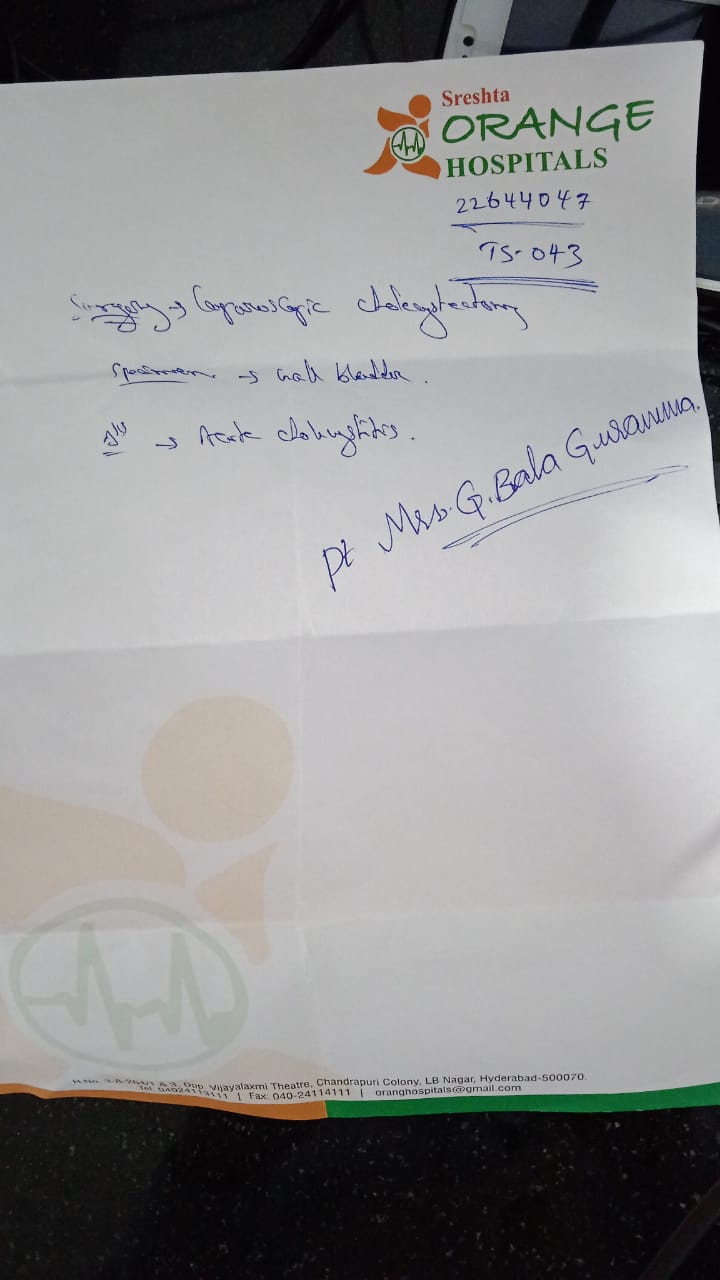 Sreshta
ORANGE
HOSPITALS
22644047
TS-043
Surgery → Laparoscopic cholecystectomy
Specimen → Gall bladder.
→ Acute cholecystitis.
pt Mrs. G. Bala Guramma.
H.No. 3-8-264/1 & 3, Opp. Vijayalaxmi Theatre, Chandrapuri Colony, LB Nagar, Hyderabad-500070.
Tel: 04024113111 | Fax: 040-24114111 | oranghospitals@gmail.com